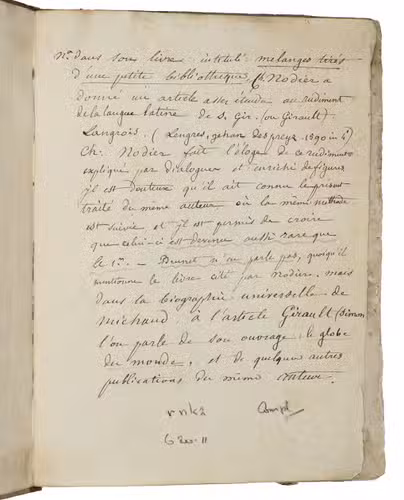 Nta dans son livre intitulé melanges tirés
d'une petite bibliothèque, Ch Nodier a
donné un article assez étendu au rudiment
de la langue latine de S. Gir. (ou Girault)
Langrois. (Lengres, Jehan Despreyz 1590 in
Ch. Nodier fait l'éloge de ce rudiment
expliqué par dialogues et enrichi de figures
il est douteux qu'il ait connu le présent
traité du même auteur où la même méthode
est suivie et il est permis de croire
que celui-ci est devenu aussi rare que
le 1er. - Brunet n'en parle pas, quoiqu'il
mentionne le livre cité par Nodier, mais
dans la biographie universelle de
michaud à l'article Girault (Simon
l'on parle de son ouvrage: le globe
du monde, et de quelques autres
publications du même auteur.
Compl